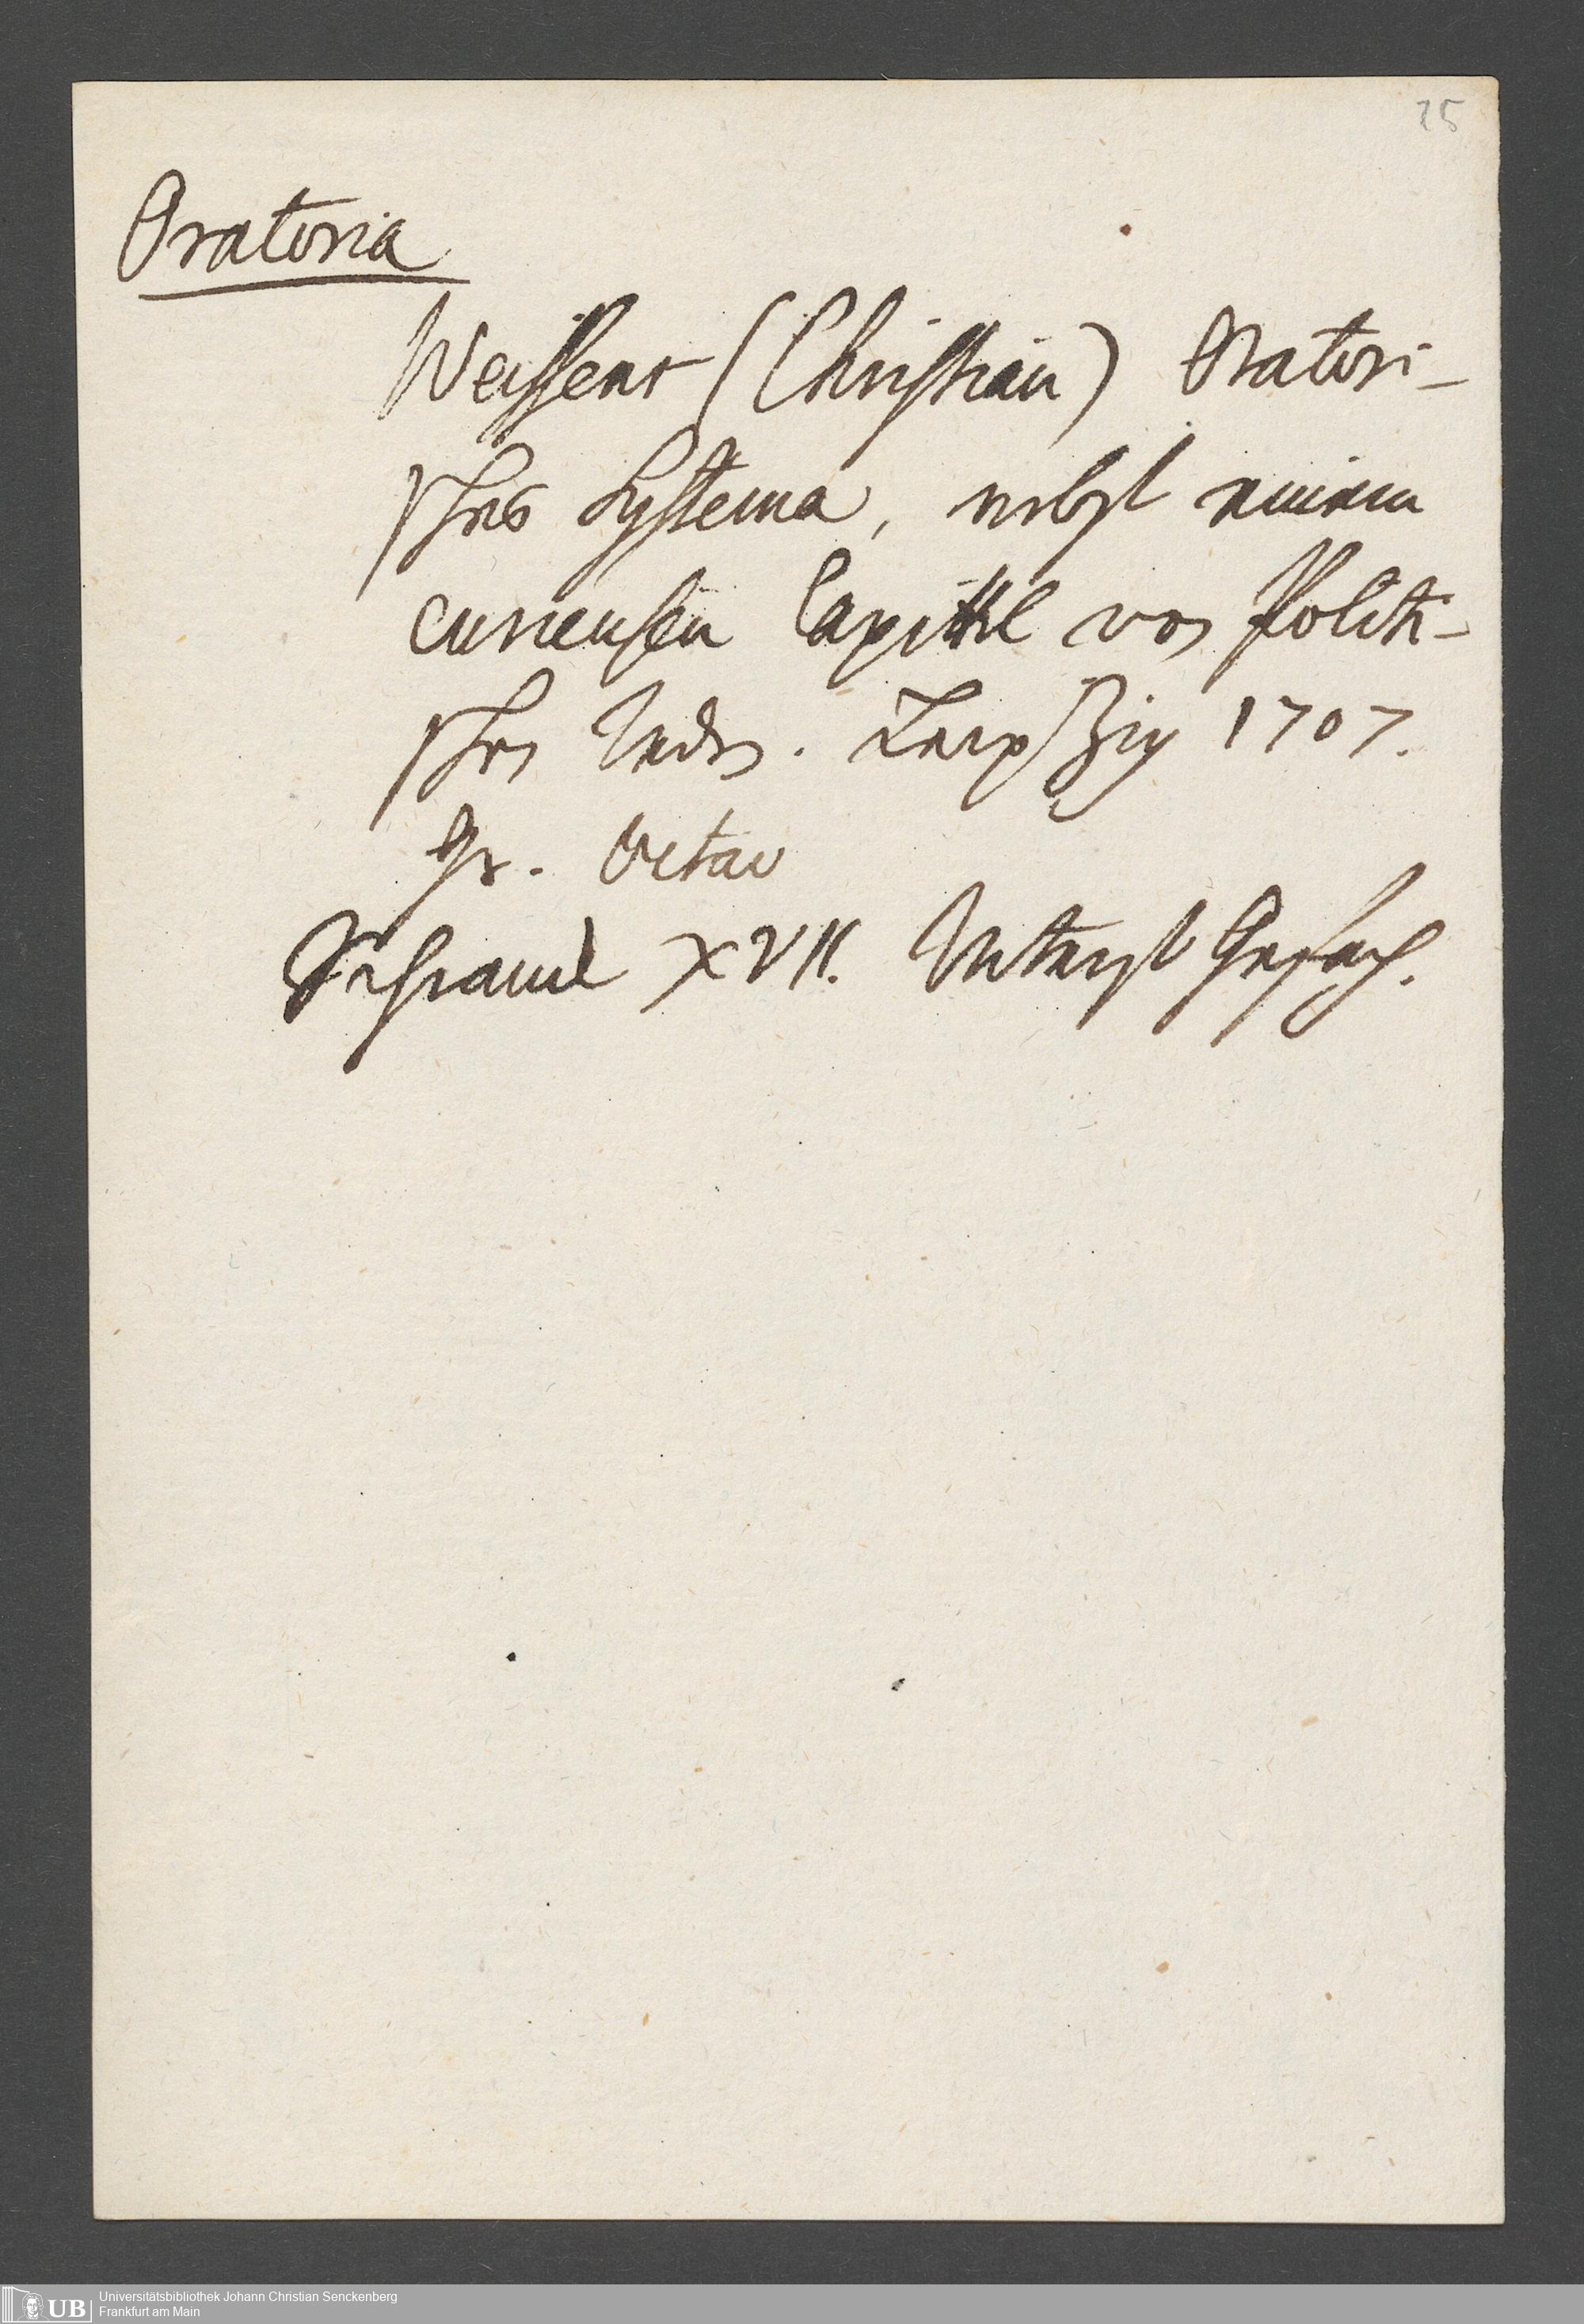 25
Oratoria
Weissens (Christian) Oratori-
sches Systema, nebst einem
curieusen Capittel von Politi-
schen Reden. Leipßig 1707.
Gr. Octav
Schranck XVII. Unterst Gefach.
UB Universitätsbibliothek Johann Christian Senckenberg
Frankfurt am Main